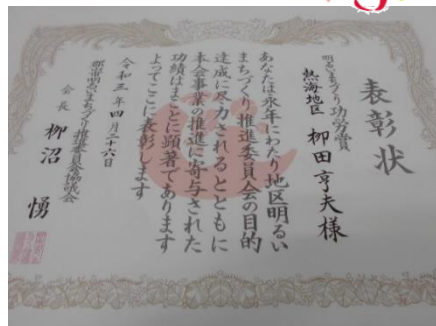 表彰状
明るいまちづくり功労賞
熱海地区 柳田亨夫様
あなたは永年にわたり地区明るい
まちづくり推進委員会の目的
達成に尽力されるとともに
本会事業の推進に寄与された
功績はまことに顕著であります
よってここに表彰します
令和三年四月二十六日
郡山市明るいまちづくり推進委員会協議会
会長 柳沼 慯